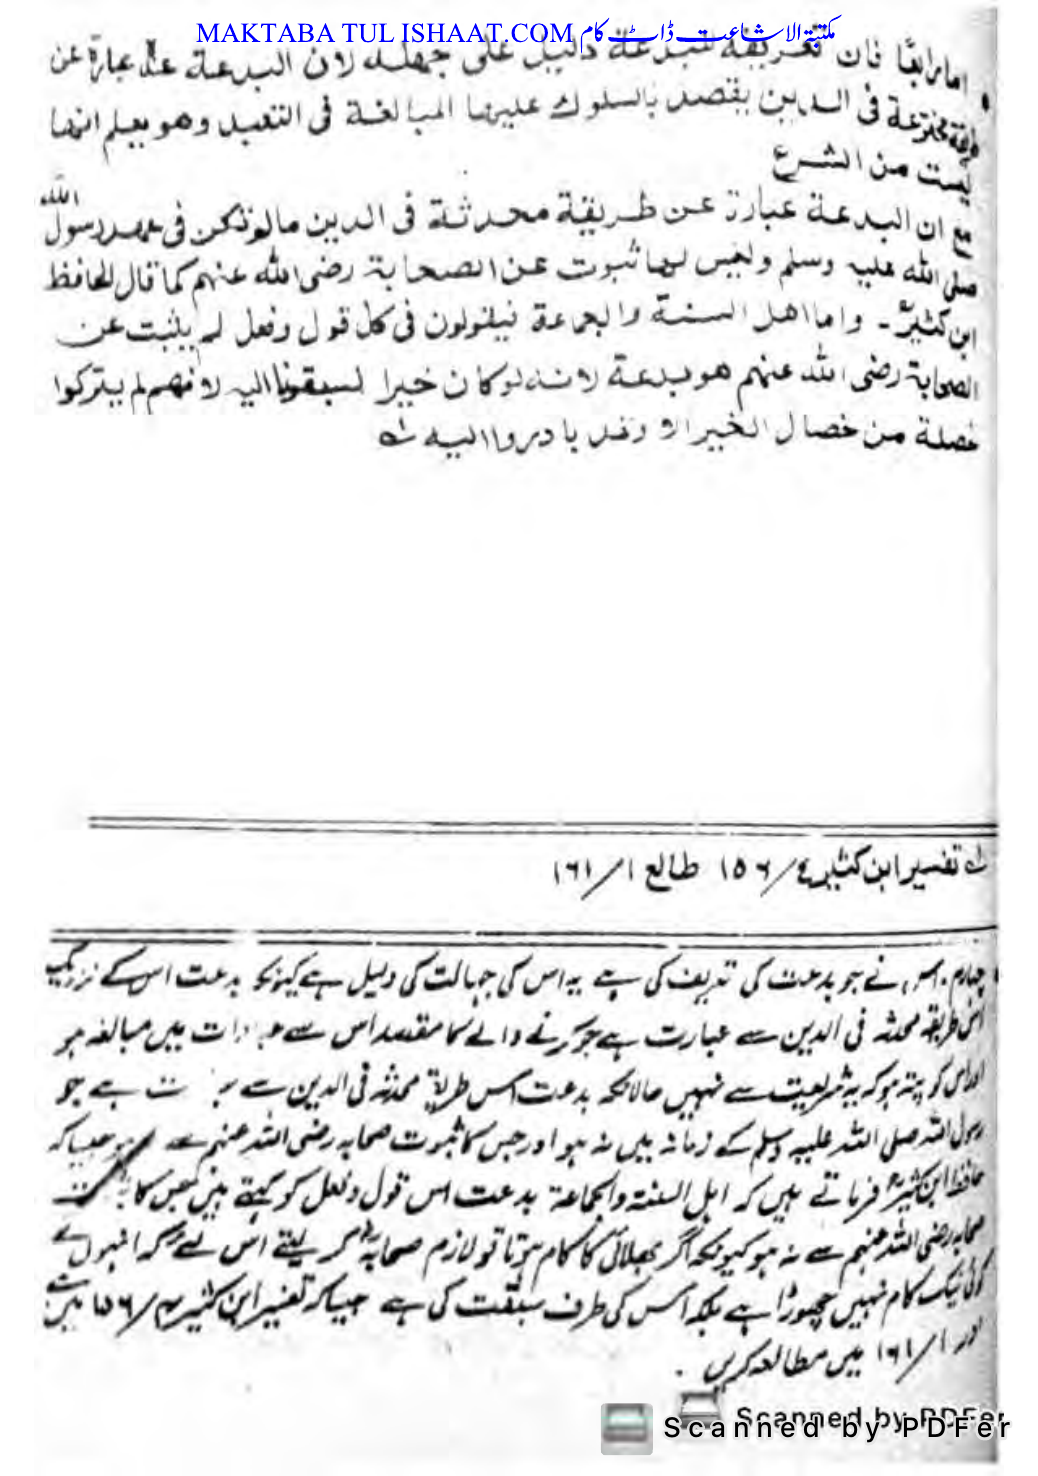 MAKTABA TUL ISHAAT.COM مکتبۃ الاشاعت ڈاٹ کام
اما رابعًا فان تعریفه للبدعة دلیل علی جهله لان البدعة عندہ عبارة عن
طریقة مخترعة فی الدین یقصد بالسلوك علیها المبالغة فی التعبد وهو یعلم انها
لیست من الشرع
مع ان البدعة عبارة عن طریقة محدثة فی الدین مالم تکن فی عهد رسول الله
صلی الله علیه وسلم ولیس لها ثبوت عن الصحابة رضی الله عنهم کما قال الحافظ
ابن کثیرؒ ۔ واما اهل السنة والجماعة فیقولون فی کل قول وفعل لم یثبت عن
الصحابة رضی الله عنهم هو بدعة لانه لو کان خیرا لسبقونا الیه لانهم لم یترکوا
خصلة من خصال الخیر الا وقد بادروا الیه
تفسیر ابن کثیر ۴/۱۵۶ طالع ۱/۱۶۱
چہارم، اس نے جو بدعت کی تعریف کی ہے یہ اس کی جہالت کی دلیل ہے کیونکہ بدعت اس کے نزدیک
اس طریقہ محدثہ فی الدین سے عبارت ہے جو کرنے والے کا مقصد اس سے عبادات میں مبالغہ ہو
اور اس کو پتہ ہو کہ یہ شریعت سے نہیں حالانکہ بدعت اس طریقہ محدثہ فی الدین سے عبارت ہے جو
رسول اللہ صلی اللہ علیہ وسلم کے زمانہ میں نہ ہو اور جس کا ثبوت صحابہ رضی اللہ عنہم سے نہ ہو جیسا کہ
حافظ ابن کثیرؒ فرماتے ہیں کہ اہل السنۃ والجماعۃ بدعت اس قول و فعل کو کہتے ہیں جس کا ثبوت
صحابہ رضی اللہ عنہم سے نہ ہو کیونکہ اگر بھلائی کا کام ہوتا تو لازم صحابہؓ کر لیتے اس لئے کہ انہوں نے
کوئی نیک کام نہیں چھوڑا ہے بلکہ اس کی طرف سبقت کی ہے جیسا کہ تفسیر ابن کثیر ۴/۱۵۶ میں ہے
اور ۱/۱۶۱ میں مطالعہ کریں ۔
Scanned by PDFer
Scanned by PDFer